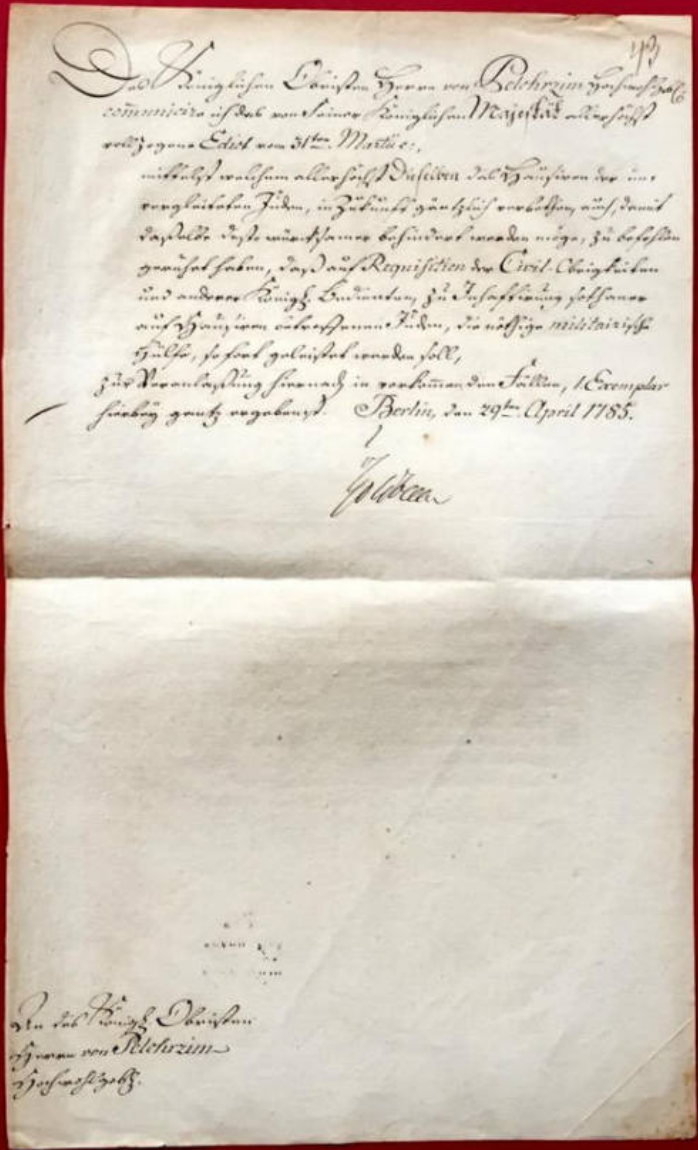 93
Des Königlichen Obristen Herrn von Pelchrzim Hochwohlgeb.
communicire ich das von Seiner Königlichen Majestät allerhöchst
vollzogene Edict vom 31ten Martii c.,
mittelst welchem allerhöchst Dieselben das Hausiren der un-
vergleiteten Juden, in Zukunft gäntzlich verbothen, auch, damit
daßelbe desto würcksamer behindert werden möge, zu befehlen
geruhet haben, daß auf Requisition der Civil-Obrigkeiten
und anderer Königl. Bedienten, zu Inhaftirung sothaner
auf Hausiren betroffenen Juden, die nöthige militairische
Hülfe, sofort geleistet werden soll,
zur Veranlaßung hiernach in vorkommenden Fällen, 1 Exemplar
hierbey gantz ergebenst. Berlin, den 29ten April 1785.
An des Königl. Obristen
Herrn von Pelchrzim
Hochwohlgeb.